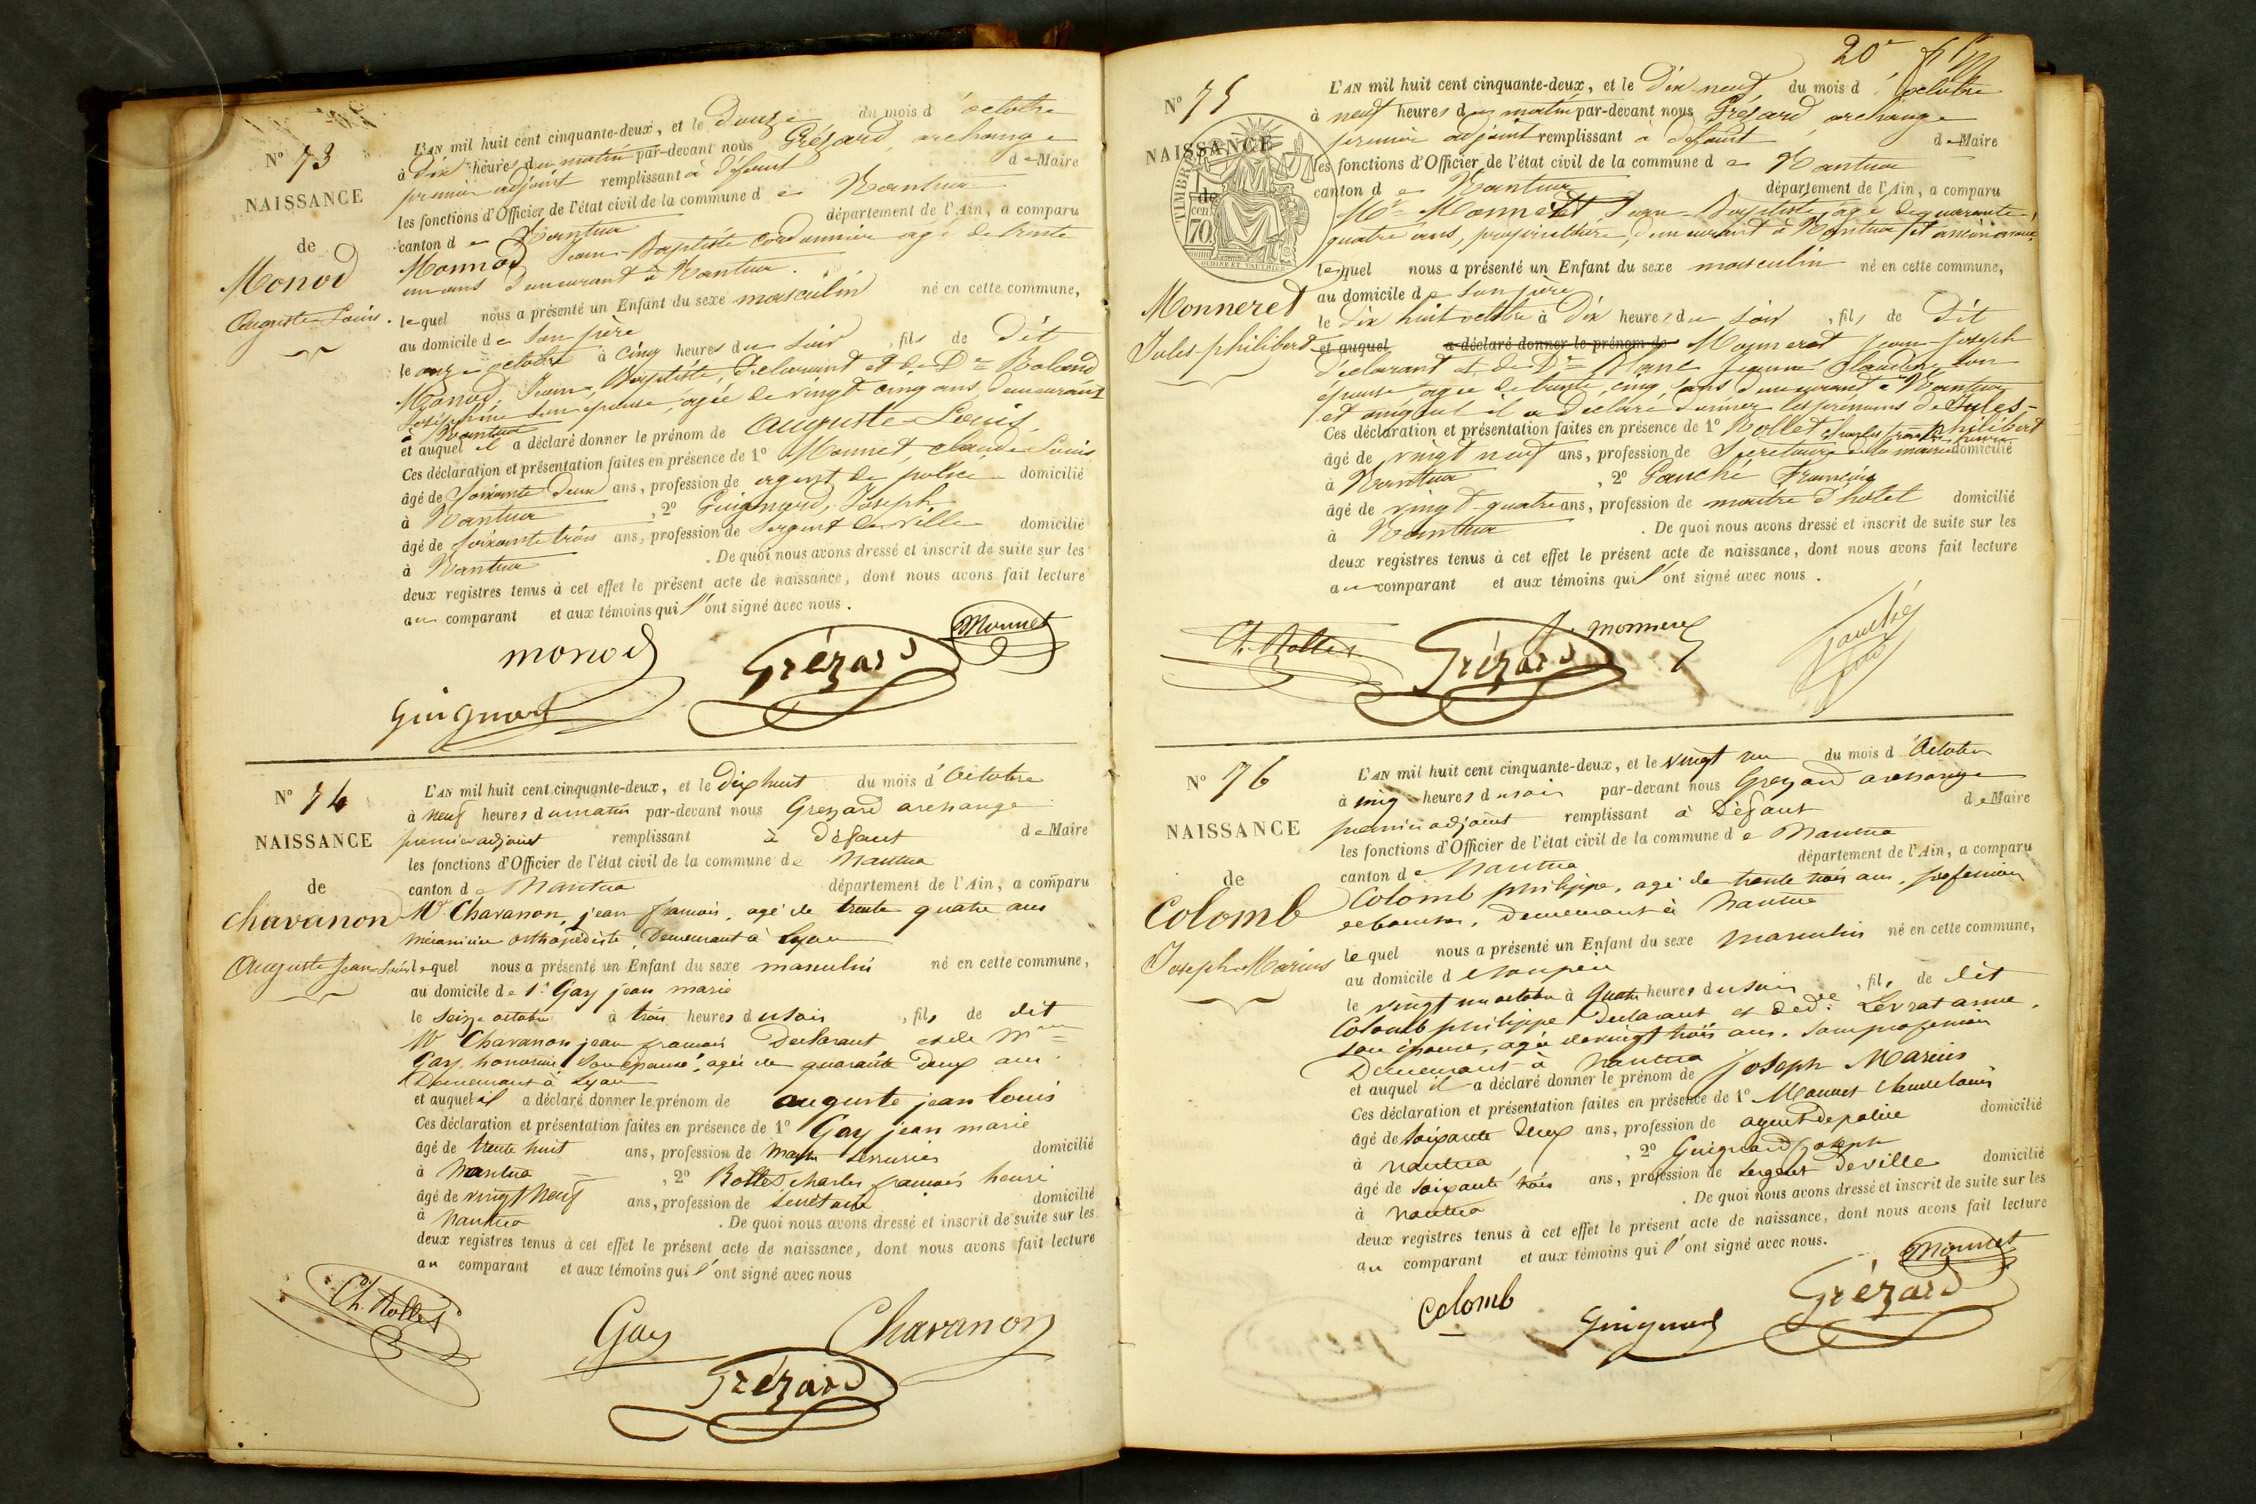 N° 73
NAISSANCE
de
Monod
Auguste Louis.
L'AN mil huit cent cinquante-deux, et le Douze du mois d'octobre
à Dix heures du matin par-devant nous Grézard, archange
premier adjoint remplissant à défaut de Maire
les fonctions d'Officier de l'état civil de la commune de Nantua
canton de Nantua département de l'Ain, a comparu
Monnod Jean-Baptiste cordonnier agé de trente
un ans demeurant à Nantua.
lequel nous a présenté un Enfant du sexe masculin né en cette commune,
au domicile de son père
le onze octobre à cinq heures du soir, fils de dit
Monod, Jean, Baptiste, déclarant et de De Boland
Joséphine son épouse, agée de vingt cinq ans, demeurant
à Nantua
et auquel il a déclaré donner le prénom de Auguste Louis.
Ces déclaration et présentation faites en présence de 1° Monnet, claude Louis
âgé de soixante deux ans, profession de agent de police domicilié
à Nantua, 2° Guignard, Joseph
âgé de soixante trois ans, profession de sergent de ville domicilié
à Nantua. De quoi nous avons dressé et inscrit de suite sur les
deux registres tenus à cet effet le présent acte de naissance, dont nous avons fait lecture
au comparant et aux témoins qui l'ont signé avec nous.
monod
Grézard
Monnet
Guignard
N° 74
NAISSANCE
de
Chavanon
Auguste Jean-Louis
L'AN mil huit cent cinquante-deux, et le Dix huit du mois d'Octobre
à Neuf heures du matin par-devant nous Grezard archange
premier adjoint remplissant à défaut de Maire
les fonctions d'Officier de l'état civil de la commune de Nantua
canton de Nantua département de l'Ain, a comparu
Mr Chavanon, jean francois, agé de trente quatre ans
mécanicien orthopédiste, Demeurant à Lyon
lequel nous a présenté un Enfant du sexe masculin né en cette commune,
au domicile de Sr Gay jean marie
le seize octobre à trois heures du soir, fils de dit
Mr Chavanon jean francois Declarant et de Mme
Gay, honorine son épouse, agée de quarante Deux ans
Demeurant à Lyon
et auquel il a déclaré donner le prénom de auguste jean louis
Ces déclaration et présentation faites en présence de 1° Gay jean marie
âgé de trente huit ans, profession de serrurier domicilié
à Nantua, 2° Rollet charles francois henri
âgé de vingt Neuf ans, profession de secrétaire domicilié
à Nantua. De quoi nous avons dressé et inscrit de suite sur les
deux registres tenus à cet effet le présent acte de naissance, dont nous avons fait lecture
au comparant et aux témoins qui l'ont signé avec nous
Ch. Rollet
Gay
Chavanon
Grézard
20e
N° 75
NAISSANCE
de
Monneret
Jules-philibert
TIMBRE
70
L'AN mil huit cent cinquante-deux, et le Dix neuf du mois d'octobre
à neuf heures du matin par-devant nous Grézard, archange
premier adjoint remplissant à défaut de Maire
les fonctions d'Officier de l'état civil de la commune de Nantua
canton de Nantua département de l'Ain, a comparu
Mr Monneret Jean-Baptiste, agé de quarante
quatre ans, propriétaire, demeurant à Nantua
lequel nous a présenté un Enfant du sexe masculin né en cette commune,
au domicile de son père
le dix huit octobre à Dix heures du soir, fils de dit
et auquel a déclaré donner le prénom de Monneret Jean-Joseph
déclarant et de De Blanc Jeanne Claudine son
épouse agée de trente cinq ans demeurant à Nantua
et auquel il a déclaré donner les prénoms de Jules-
philibert
Ces déclaration et présentation faites en présence de 1° Rollet
âgé de vingt neuf ans, profession de Secrétaire de la mairie domicilié
à Nantua, 2° Gauché François
âgé de vingt quatre ans, profession de maitre d'hotel domicilié
à Nantua. De quoi nous avons dressé et inscrit de suite sur les
deux registres tenus à cet effet le présent acte de naissance, dont nous avons fait lecture
au comparant et aux témoins qui l'ont signé avec nous.
Ch. Rollet
Grézard
Monneret
Gauché
N° 76
NAISSANCE
de
Colomb
Joseph-Marius
L'AN mil huit cent cinquante-deux, et le vingt un du mois d'Octobre
à cinq heures du soir par-devant nous Grezard archange
premier adjoint remplissant à Défaut de Maire
les fonctions d'Officier de l'état civil de la commune de Nantua
canton de Nantua département de l'Ain, a comparu
Colomb philippe, agé de trente trois ans, profession
, Demeurant à Nantua
lequel nous a présenté un Enfant du sexe masculin né en cette commune,
au domicile de son père
le vingt un octobre à quatre heures du soir, fils de dit
Colomb philippe Declarant et de De Levrat anne,
son épouse, agée de vingt trois ans, sans profession
Demeurant à Nantua
et auquel il a déclaré donner le prénom de Joseph Marius
Ces déclaration et présentation faites en présence de 1° Monnet claude louis
âgé de soixante Deux ans, profession de agent de police domicilié
à nantua, 2° Guignard Joseph
âgé de soixante trois ans, profession de sergent de ville domicilié
à nantua. De quoi nous avons dressé et inscrit de suite sur les
deux registres tenus à cet effet le présent acte de naissance, dont nous avons fait lecture
au comparant et aux témoins qui l'ont signé avec nous.
Colomb
Guignard
Grézard
Monnet